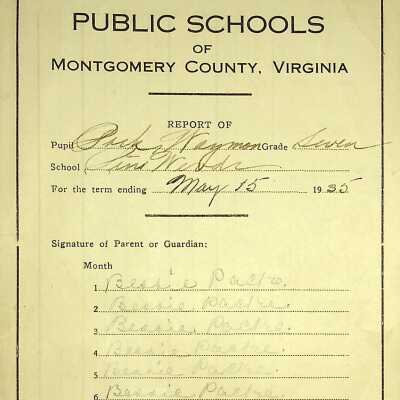 PUBLIC SCHOOLS
OF
MONTGOMERY COUNTY, VIRGINIA
REPORT OF
Pupil Waymon Grade Seven
School Woods
For the term ending May 15 1935
Signature of Parent or Guardian:
Month
1 Bessie
2 Bessie
3 Bessie
4 Bessie
5 Bessie
6 Bessie